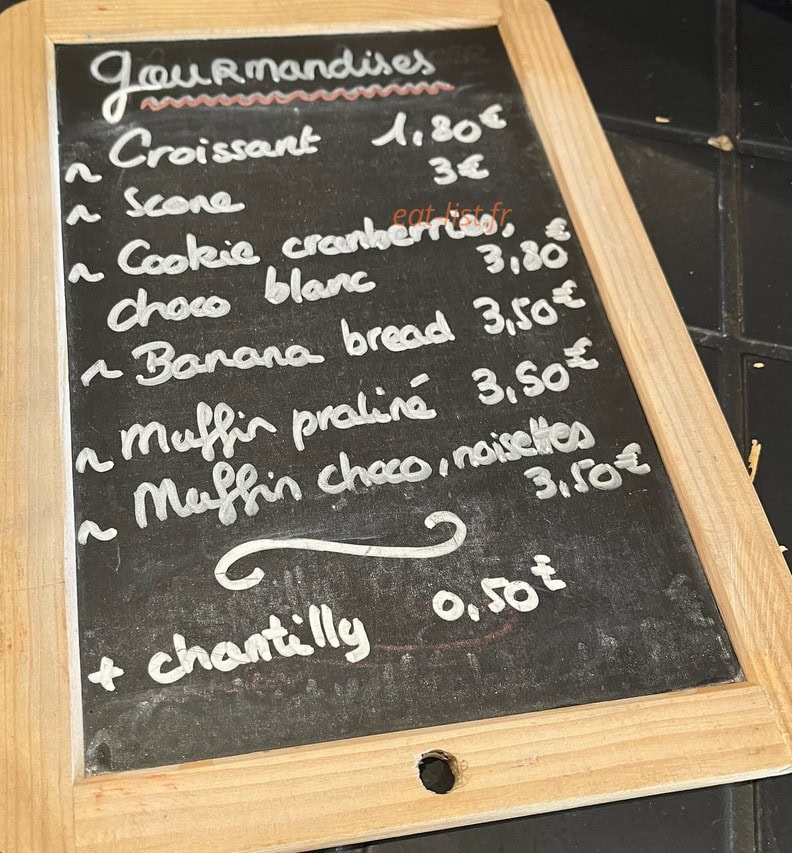 Gourmandises
~ Croissant 1,80€
~ Scone 3€
eat-list.fr
~ Cookie cranberries,
choco blanc 3,80€
~ Banana bread 3,50€
~ Muffin praliné 3,50€
~ Muffin choco, noisettes
3,50€
+ chantilly 0,50€